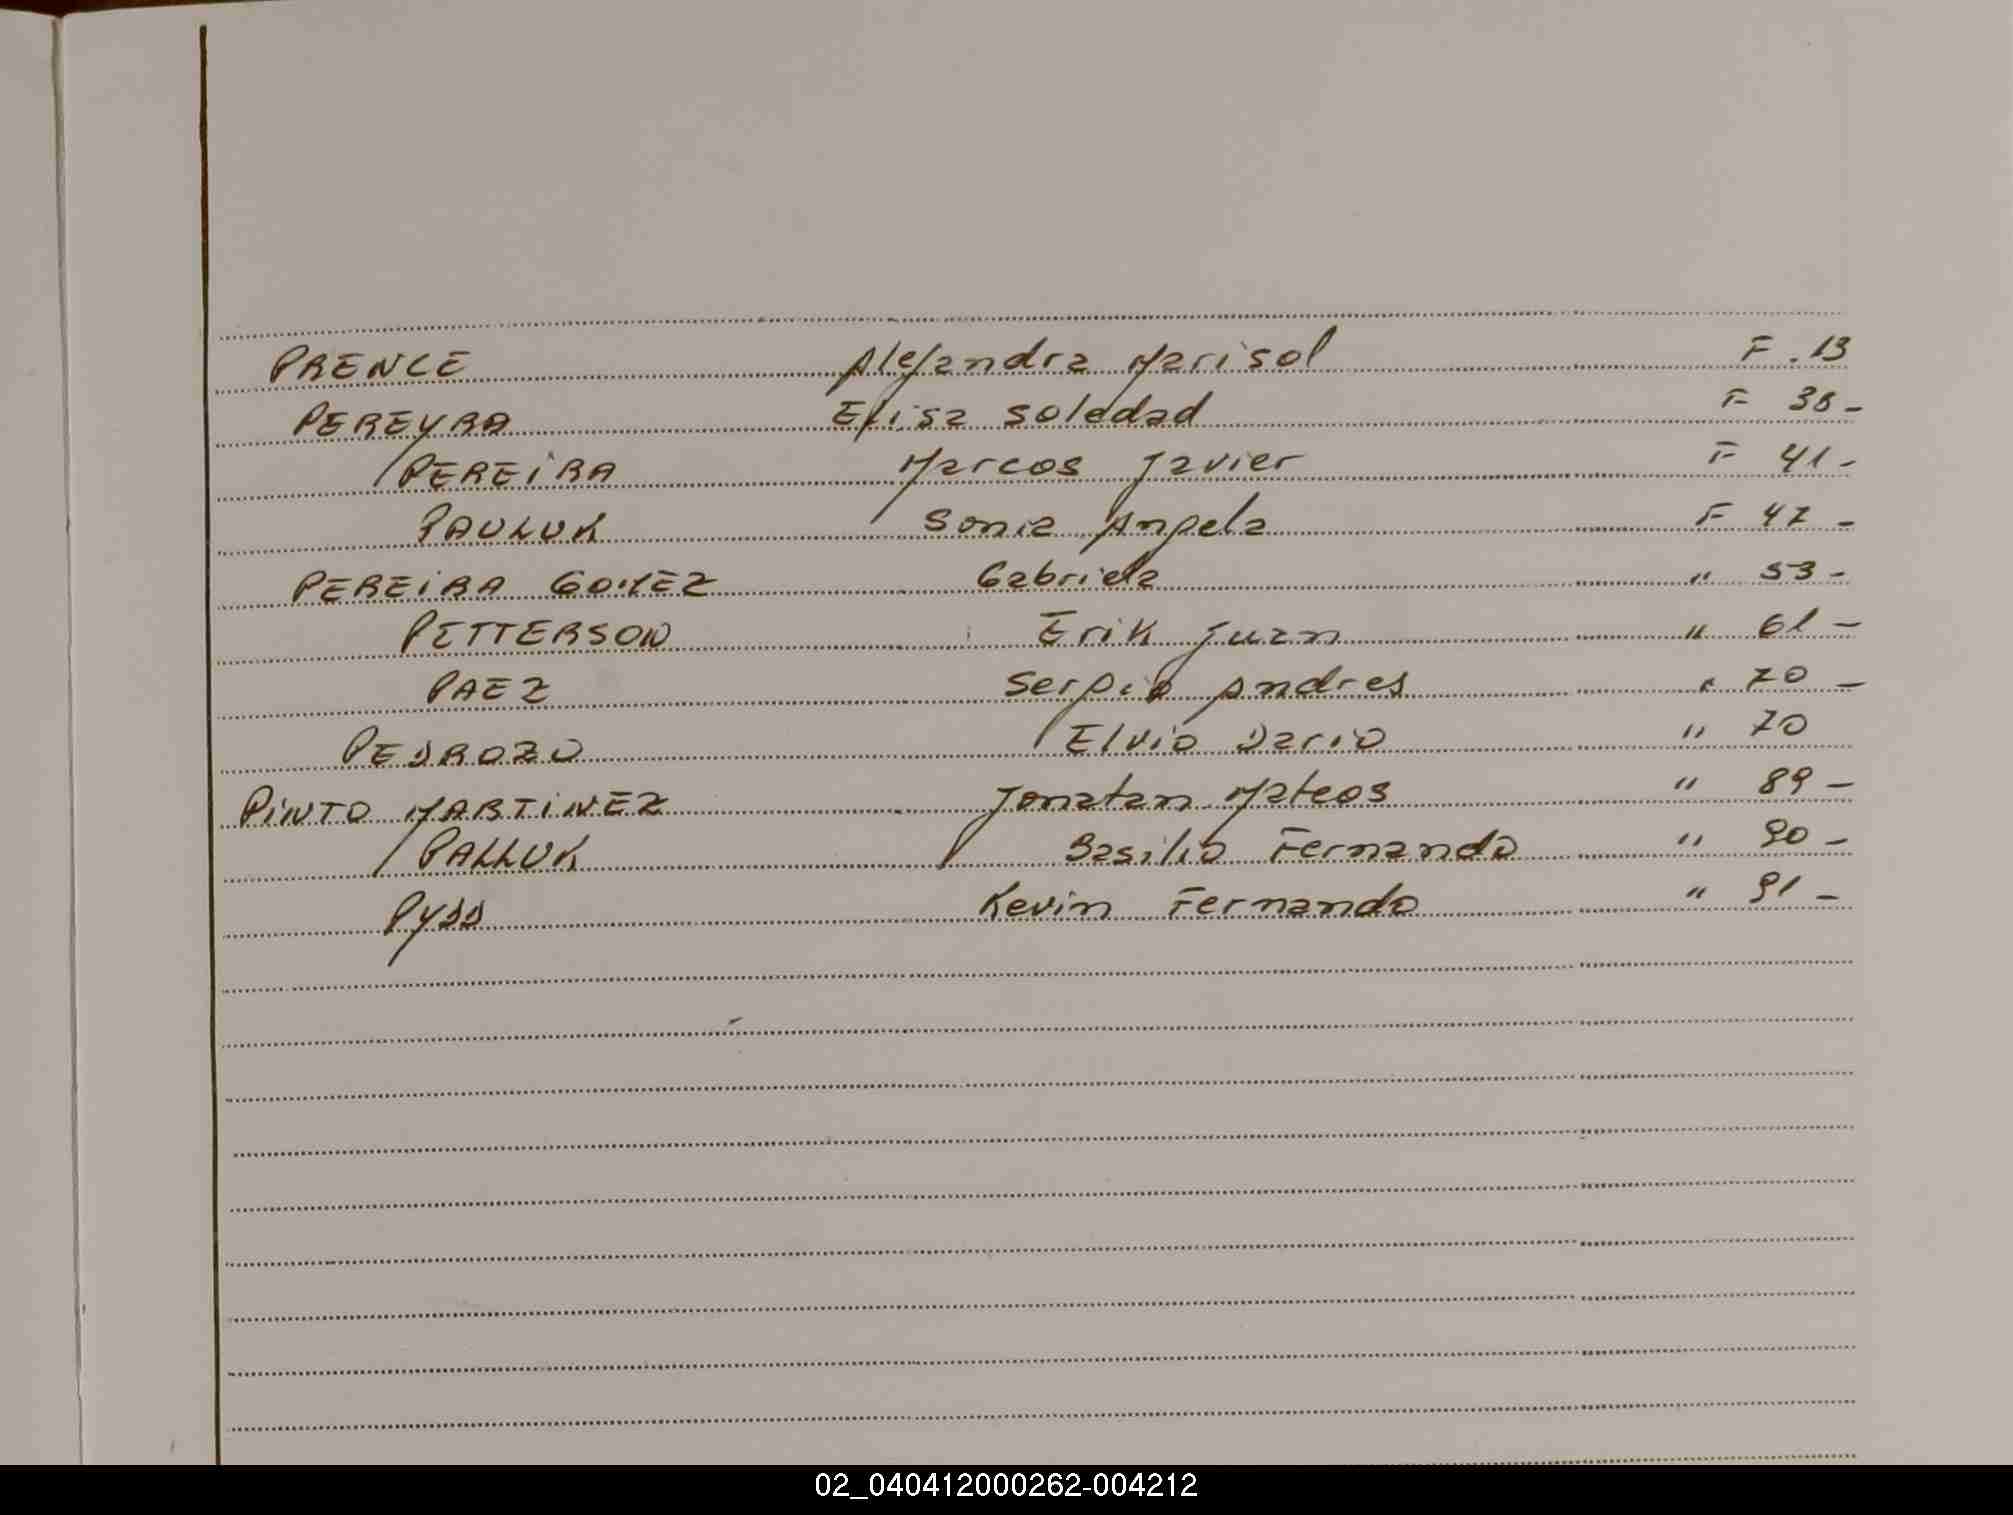 PRENCE Alejandra Marisol F. 13
PEREYRA Elisa Soledad F 38-
PEREIRA Marcos Javier F 41-
PAULUK Sonia Angela F 47-
PEREIRA GOMEZ Gabriela " 53-
PETTERSON Erik Juan " 61-
PAEZ Sergio Andres " 70-
PEDROZO Elvio Dario " 70
PINTO MARTINEZ Jonatan Mateos " 89-
PALLUK Basilio Fernando " 90-
Kevin Fernando " 91-
02_040412000262-004212